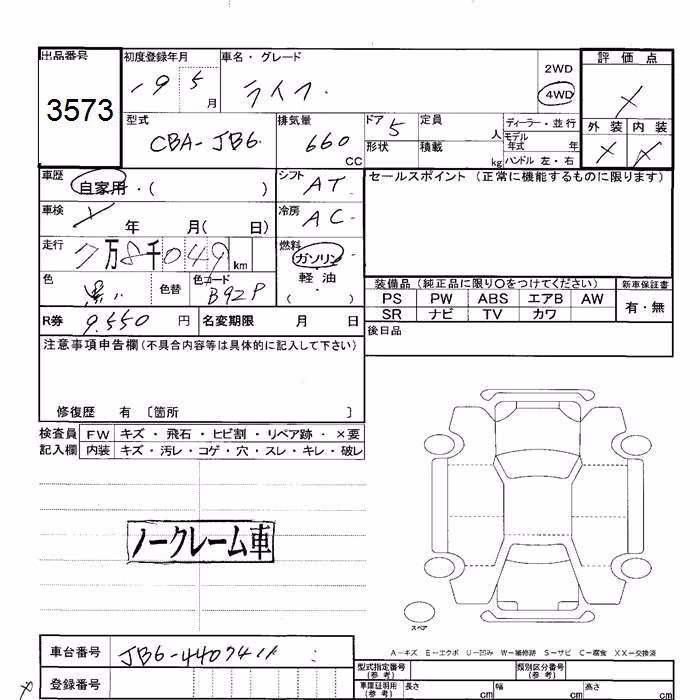 出品番号 初度登録年月 車名・グレード 評価点
3573 19 5 月 ライフ 2WD 4WD
型式 排気量 ドア 5 定員 人 ディーラー・並行 外装 内装
CBA-JB6 660 CC 形状 積載 kg モデル年式 年 ハンドル 左・右
車歴 自家用・( ) シフト AT セールスポイント (正常に機能するものに限ります)
車検 年 月( 日) 冷房 AC
走行 7万8千049 km 燃料 ガソリン
軽油
( )
色 黒 色替 色コード B92P
装備品 (純正品に限り○をつけてください) 新車保証書
PS PW ABS エアB AW 有・無
SR ナビ TV カワ
R券 9.550 円 名変期限 月 日
後日品
注意事項申告欄(不具合内容等は具体的に記入して下さい)
修復歴 有 〔箇所 〕
検査員 FW キズ・飛石・ヒビ割・リペア跡・×要
記入欄 内装 キズ・汚レ・コゲ・穴・スレ・キレ・破レ
ノークレーム車
スペア
A-キズ E-エクボ U-凹み W-補修跡 S-サビ C-腐食 XX-交換済
車台番号
登録番号
型式指定番号(参考) 類別区分番号(参考)
車庫証明用(参考) 長さ cm 幅 cm 高さ cm